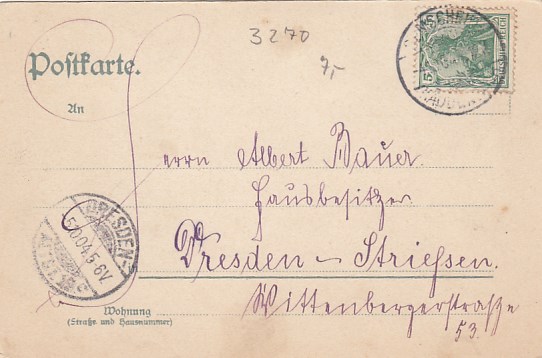 3270
7,-
Postkarte.
An
Herrn Albert Bauer.
Hausbesitzer
Dresden – Striessen.
Wittenbergerstraße
53.
Wohnung
(Straße und Hausnummer)
DRESDEN
04.5-6V.
5
DEUTSCHES REICH